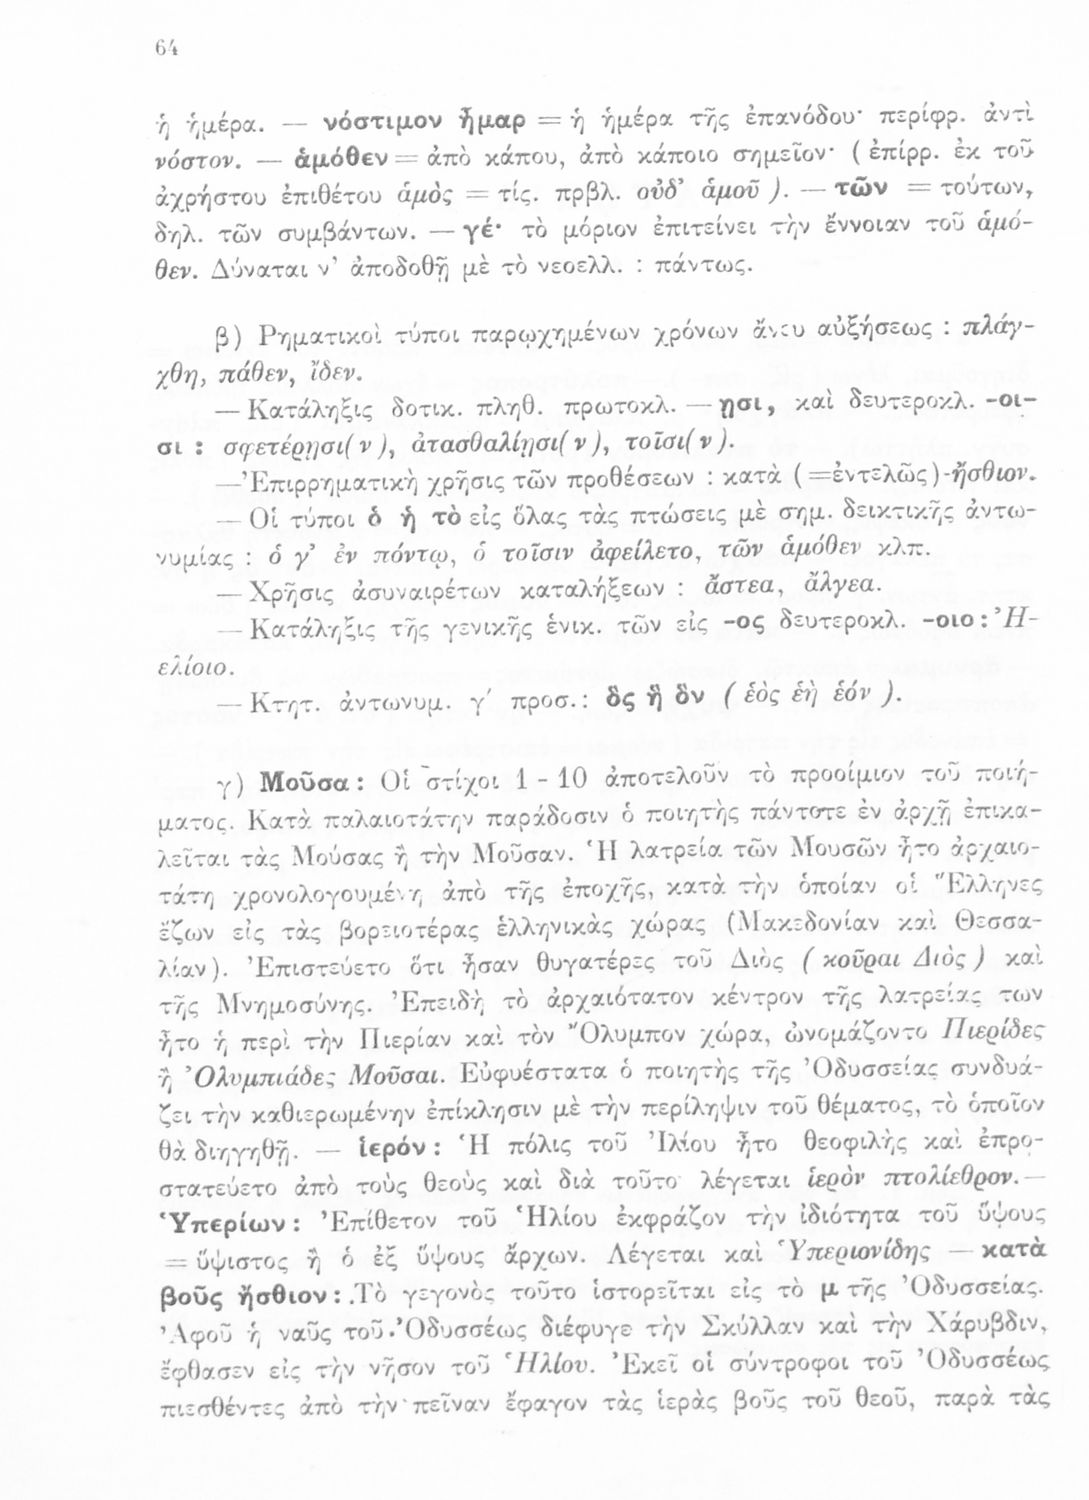 64
ἡ ἡμέρα. — νόστιμον ἦμαρ = ἡ ἡμέρα τῆς ἐπανόδου· περίφρ. ἀντὶ
νόστον. — ἁμόθεν = ἀπὸ κάπου, ἀπὸ κάποιο σημεῖον· ( ἐπίρρ. ἐκ τοῦ
ἀχρήστου ἐπιθέτου ἁμὸς = τίς. πρβλ. οὐδ’ ἁμοῦ ). — τῶν = τούτων,
δηλ. τῶν συμβάντων. — γέ· τὸ μόριον ἐπιτείνει τὴν ἔννοιαν τοῦ ἁμό-
θεν. Δύναται ν’ ἀποδοθῇ μὲ τὸ νεοελλ. : πάντως.
β) Ρηματικοὶ τύποι παρῳχημένων χρόνων ἄνευ αὐξήσεως : πλάγ-
χθη, πάθεν, ἴδεν.
— Κατάληξις δοτικ. πληθ. πρωτοκλ. — ῃσι, καὶ δευτεροκλ. -οι-
σι : σφετέρῃσι( ν ), ἀτασθαλίῃσι( ν ), τοῖσι( ν ).
—’Επιρρηματικὴ χρῆσις τῶν προθέσεων : κατὰ ( =ἐντελῶς )-ἤσθιον.
— Οἱ τύποι ὁ ἡ τὸ εἰς ὅλας τὰς πτώσεις μὲ σημ. δεικτικῆς ἀντω-
νυμίας : ὁ γ’ ἐν πόντῳ, ὁ τοῖσιν ἀφείλετο, τῶν ἁμόθεν κλπ.
— Χρῆσις ἀσυναιρέτων καταλήξεων : ἄστεα, ἄλγεα.
— Κατάληξις τῆς γενικῆς ἑνικ. τῶν εἰς -ος δευτεροκλ. -οιο : ’Η-
ελίοιο.
— Κτητ. ἀντωνυμ. γ΄ προσ. : ὃς ἣ ὃν ( ἑὸς ἑὴ ἑόν ).
γ) Μοῦσα : Οἱ στίχοι 1 - 10 ἀποτελοῦν τὸ προοίμιον τοῦ ποιή-
ματος. Κατὰ παλαιοτάτην παράδοσιν ὁ ποιητὴς πάντοτε ἐν ἀρχῇ ἐπικα-
λεῖται τὰς Μούσας ἢ τὴν Μοῦσαν. ‘Η λατρεία τῶν Μουσῶν ἦτο ἀρχαιο-
τάτη χρονολογουμένη ἀπὸ τῆς ἐποχῆς, κατὰ τὴν ὁποίαν οἱ Ἕλληνες
ἔζων εἰς τὰς βορειοτέρας ἑλληνικὰς χώρας (Μακεδονίαν καὶ Θεσσα-
λίαν). ’Επιστεύετο ὅτι ἦσαν θυγατέρες τοῦ Διὸς ( κοῦραι Διὸς ) καὶ
τῆς Μνημοσύνης. ’Επειδὴ τὸ ἀρχαιότατον κέντρον τῆς λατρείας των
ἦτο ἡ περὶ τὴν Πιερίαν καὶ τὸν Ὄλυμπον χώρα, ὠνομάζοντο Πιερίδες
ἢ ’Ολυμπιάδες Μοῦσαι. Εὐφυέστατα ὁ ποιητὴς τῆς ’Οδυσσείας συνδυά-
ζει τὴν καθιερωμένην ἐπίκλησιν μὲ τὴν περίληψιν τοῦ θέματος, τὸ ὁποῖον
θὰ διηγηθῇ. — ἱερόν : ‘Η πόλις τοῦ ’Ιλίου ἦτο θεοφιλὴς καὶ ἐπρο-
στατεύετο ἀπὸ τοὺς θεοὺς καὶ διὰ τοῦτο λέγεται ἱερὸν πτολίεθρον.—
‘Υπερίων : ’Επίθετον τοῦ ‘Ηλίου ἐκφράζον τὴν ἰδιότητα τοῦ ὕψους
= ὕψιστος ἢ ὁ ἐξ ὕψους ἄρχων. Λέγεται καὶ ‘Υπεριονίδης — κατὰ
βοῦς ἤσθιον : Τὸ γεγονὸς τοῦτο ἱστορεῖται εἰς τὸ μ τῆς ’Οδυσσείας.
’Αφοῦ ἡ ναῦς τοῦ ’Οδυσσέως διέφυγε τὴν Σκύλλαν καὶ τὴν Χάρυβδιν,
ἔφθασεν εἰς τὴν νῆσον τοῦ ‘Ηλίου. ’Εκεῖ οἱ σύντροφοι τοῦ ’Οδυσσέως
πιεσθέντες ἀπὸ τὴν πεῖναν ἔφαγον τὰς ἱερὰς βοῦς τοῦ θεοῦ, παρὰ τὰς